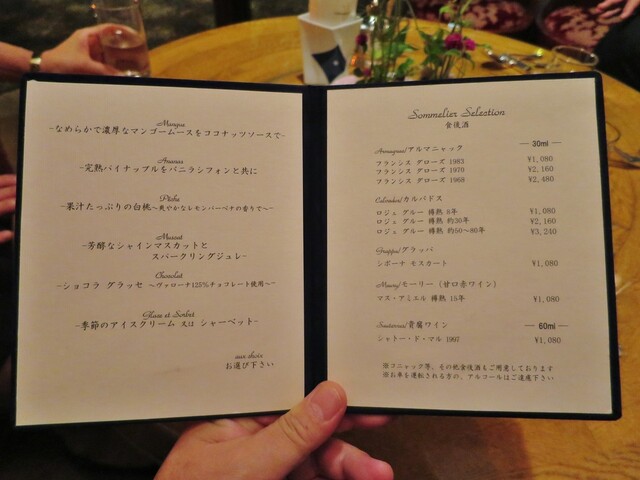 Mangue
-なめらかで濃厚なマンゴームースをココナッツソースで-
Ananas
-完熟パイナップルをバニラシフォンと共に
Pêche
-果汁たっぷりの白桃～爽やかなレモンバーベナの香りで～-
Muscat
-芳醇なシャインマスカットと
スパークリングジュレ-
Chocolat
-ショコラ グラッセ ～ヴァローナ125%チョコレート使用～-
Glace et Sorbet
-季節のアイスクリーム 又は シャーベット-
aux choix
お選び下さい
Sommelier Selection
食後酒
Armagnac/アルマニャック — 30ml —
フランシス ダローズ 1983 ¥1,080
フランシス ダローズ 1970 ¥2,160
フランシス ダローズ 1968 ¥2,480
Calvados/カルバドス
ロジェ グルー 樽熟 8年 ¥1,080
ロジェ グルー 樽熟 約30年 ¥2,160
ロジェ グルー 樽熟 約50～80年 ¥3,240
Grappa/グラッパ
シボーナ モスカート ¥1,080
Maury/モーリー (甘口赤ワイン)
マス・アミエル 樽熟 15年 ¥1,080
Sauternes/貴腐ワイン — 60ml —
シャトー・ド・マル 1997 ¥1,080
※コニャック等、その他食後酒もご用意しております
※お車を運転される方の、アルコールはご遠慮下さい